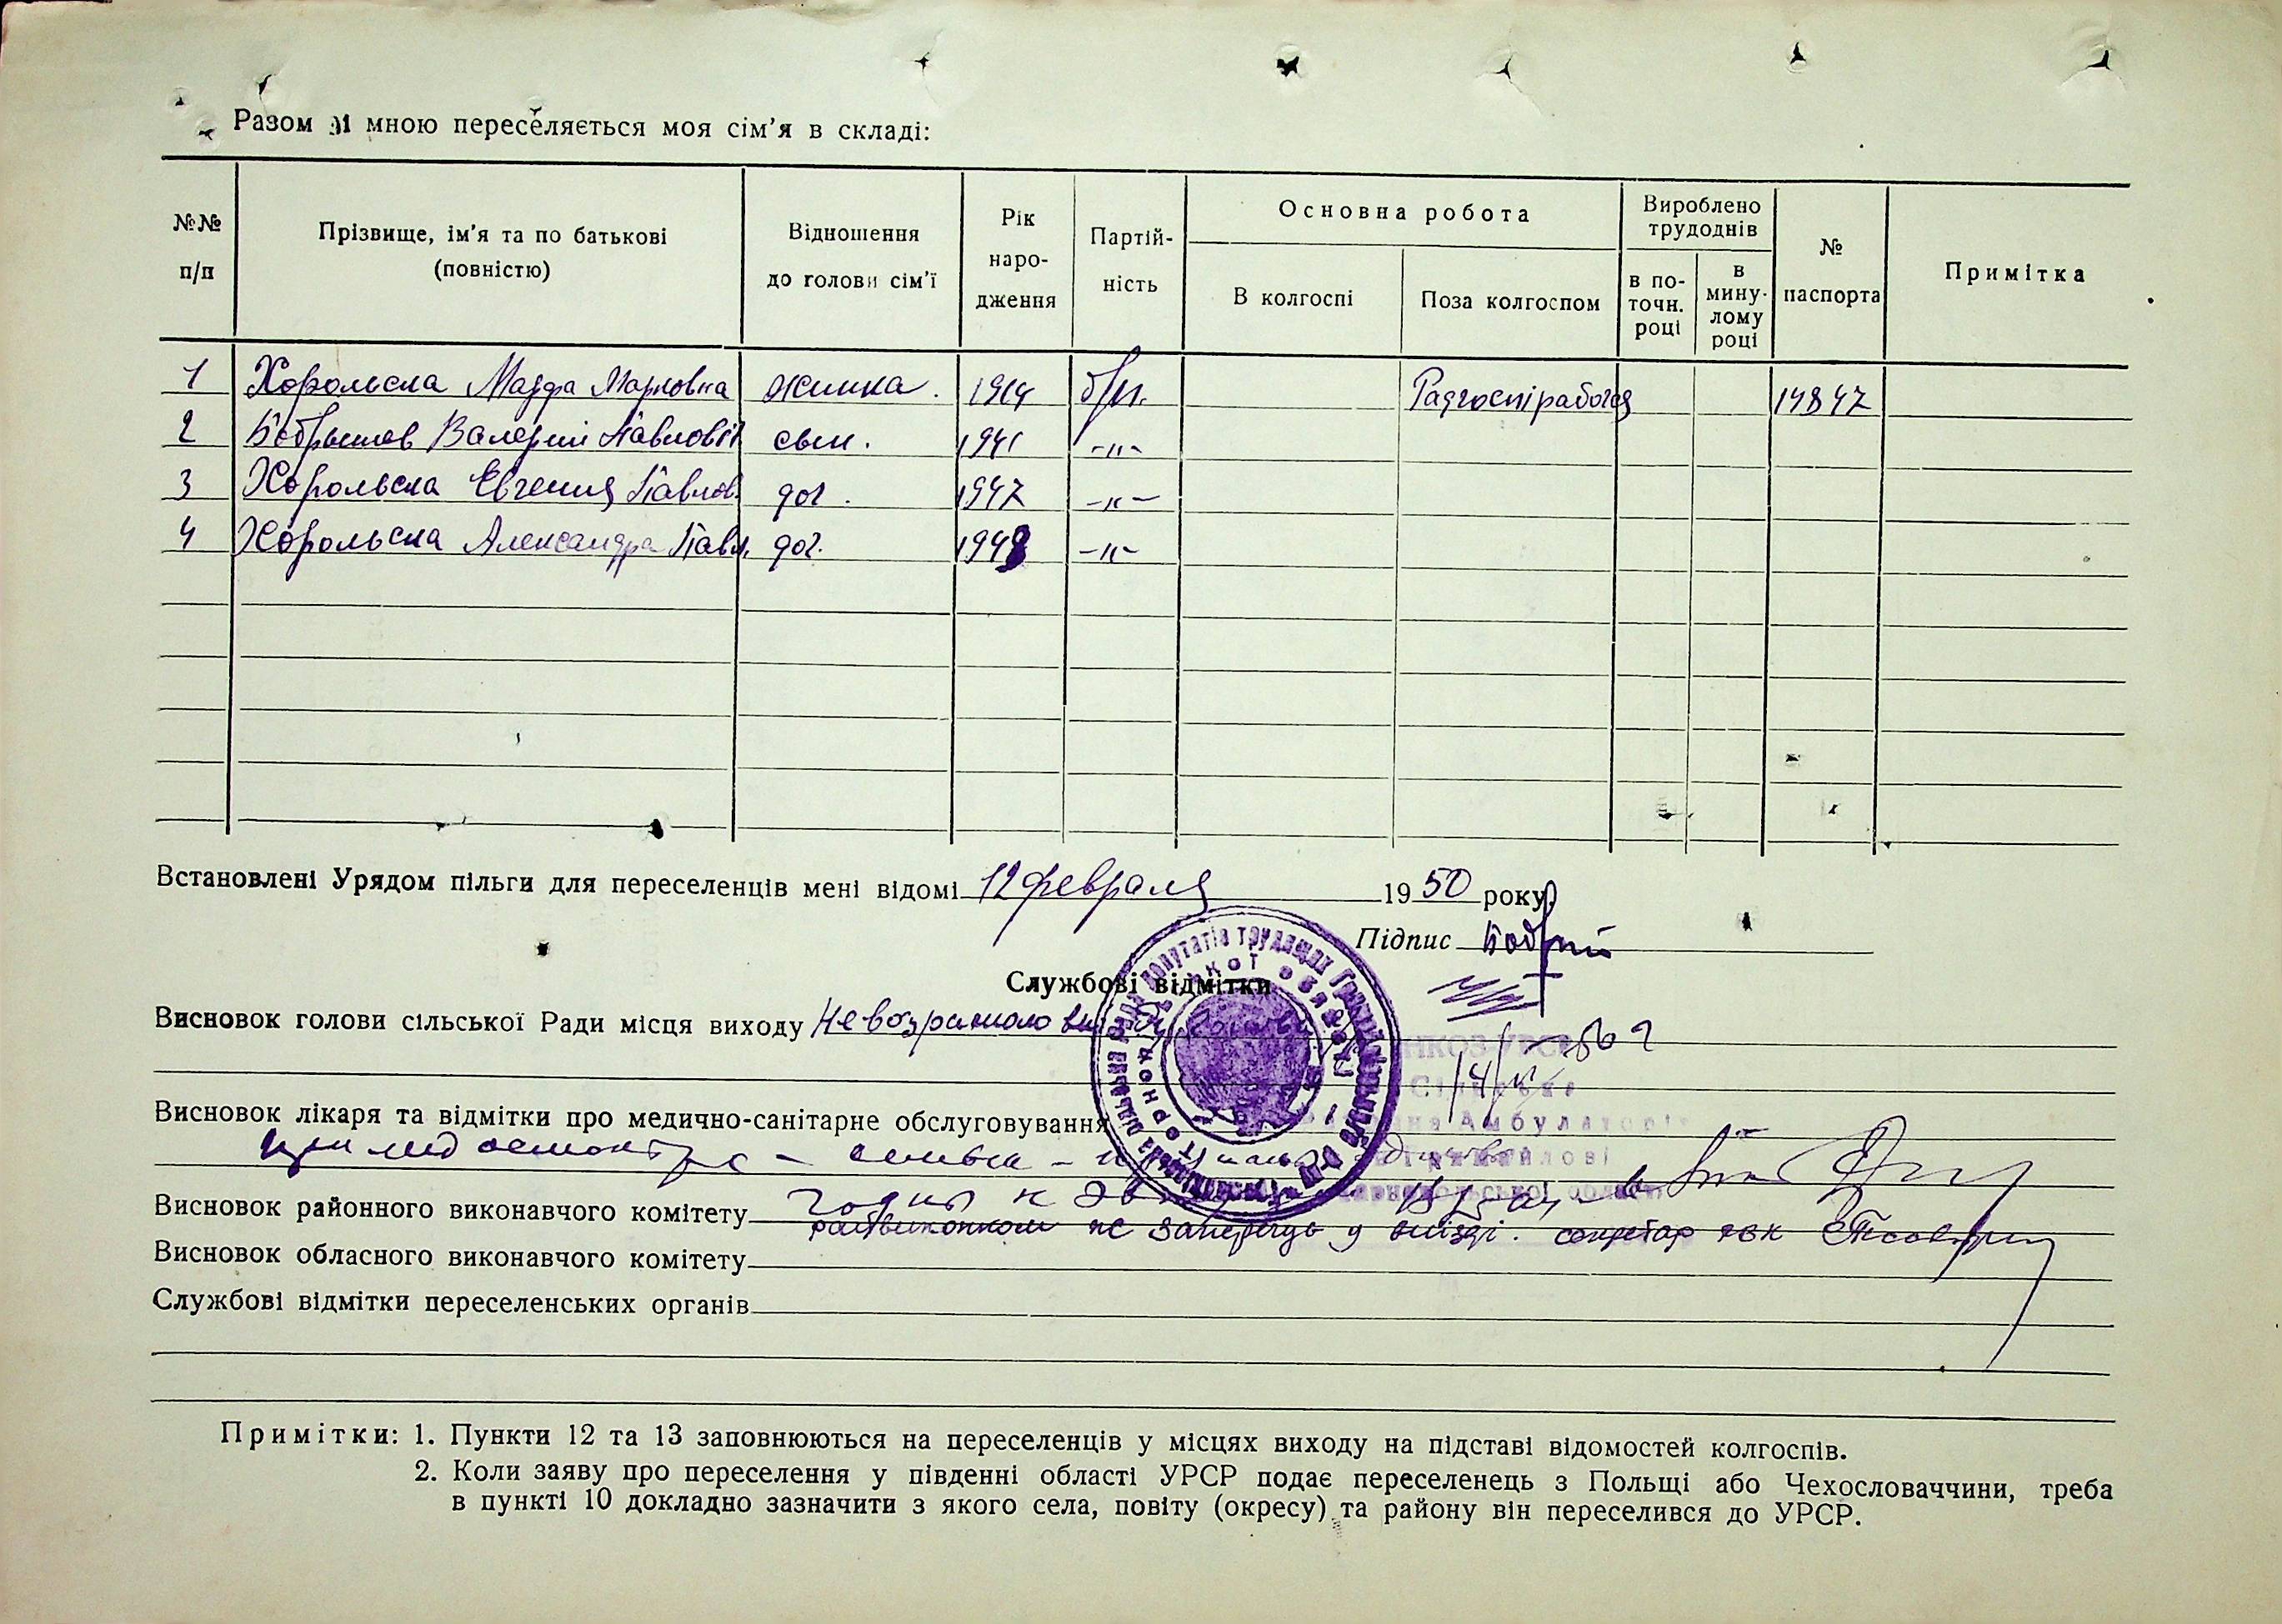 Разом зі мною переселяється моя сім'я в складі:
№№ п/п
Прізвище, ім'я та по батькові (повністю)
Відношення до голови сім'ї
Рік народження
Партійність
Основна робота
В колгоспі
Поза колгоспом
Вироблено трудоднів
в поточн. році
в минулому році
№ паспорта
Примітка
1 Хорольска Марфа Марковна жинка. 1914 б/п. 14847
2 Валерий Павлович сын. 1941 -"-
3 Хорольска Евгения Павлов. доч. 1947 -"-
4 Хорольска Александра Павл. доч. -"-
Встановлені Урядом пільги для переселенців мені відомі 12 февраля 1950 року
Підпис
Службові відмітки
Висновок голови сільської Ради місця виходу
Висновок лікаря та відмітки про медично-санітарне обслуговування
Висновок районного виконавчого комітету
райвиконком не заперечує у виїзді. секретар РВК
Висновок обласного виконавчого комітету
Службові відмітки переселенських органів
Примітки: 1. Пункти 12 та 13 заповнюються на переселенців у місцях виходу на підставі відомостей колгоспів.
2. Коли заяву про переселення у південні області УРСР подає переселенець з Польщі або Чехословаччини, треба
в пункті 10 докладно зазначити з якого села, повіту (окресу) та району він переселився до УРСР.